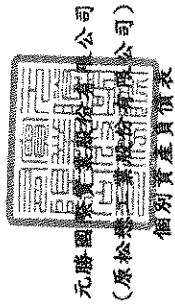 元勝國際實業股份有限公司
(原松懋工業股份有限公司)
個別資產負債表